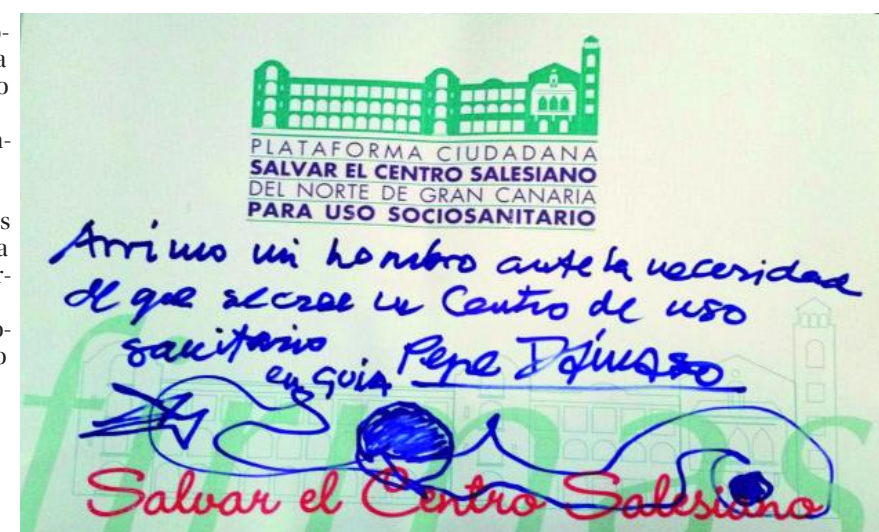 PLATAFORMA CIUDADANA
SALVAR EL CENTRO SALESIANO
DEL NORTE DE GRAN CANARIA
PARA USO SOCIOSANITARIO
Arrimo mi hombro ante la necesidad
de que se cree un Centro de uso
sanitario
en GUIA Pepe DÁMASO
firmas
Salvar el Centro Salesiano